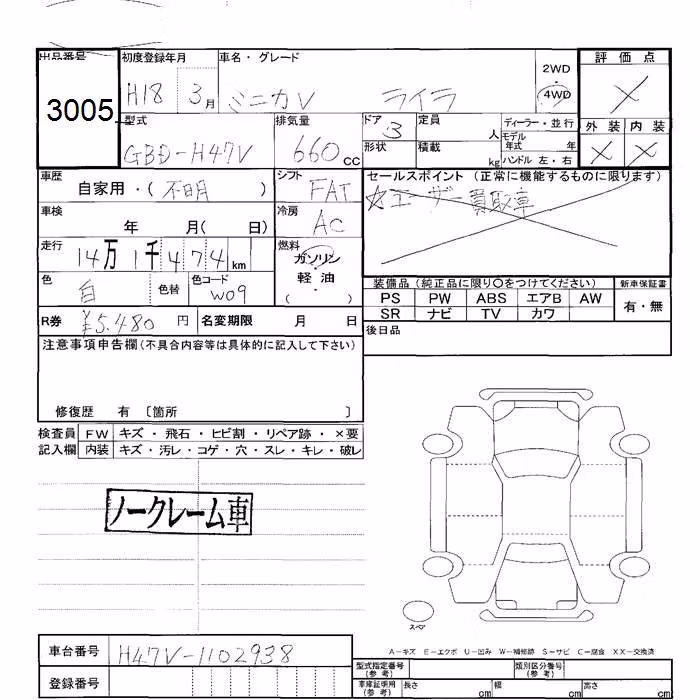 出品番号 初度登録年月 車名・グレード 評価点
3005 H18 3月 ミニカV ライラ 2WD 4WD X
型式 排気量 ドア 定員 ディーラー・並行 外装 内装
GBD-H47V 660cc 3 人 モデル年式 年 X X
形状 積載 kg ハンドル 左・右
車歴 自家用・(不明) シフト FAT セールスポイント (正常に機能するものに限ります)
ユーザー買取車
車検 年 月( 日) 冷房 AC
走行 14万1千474km 燃料 ガソリン 軽油 ( )
色 白 色替 色コード W09 装備品 (純正品に限り〇をつけてください) 新車保証書
PS PW ABS エアB AW 有・無
SR ナビ TV カワ
R券 ¥5.480円 名変期限 月 日 後日品
注意事項申告欄(不具合内容等は具体的に記入して下さい)
修復歴 有 〔箇所 〕
検査員 FW キズ・飛石・ヒビ割・リペア跡・×要
記入欄 内装 キズ・汚レ・コゲ・穴・スレ・キレ・破レ
ノークレーム車
スペア
A-キズ E-エクボ U-凹み W-補修跡 S-サビ C-腐食 XX-交換済
車台番号 H47V-1102938 型式指定番号(参考) 類別区分番号(参考)
登録番号 車庫証明用(参考) 長さ cm 幅 cm 高さ cm